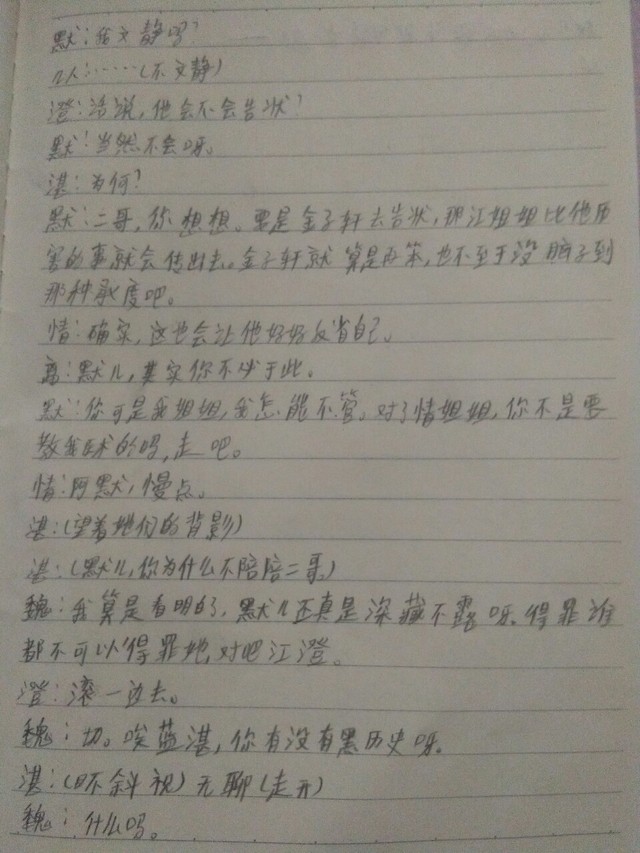 默:我文静吗?
几人:……(不文静)
澄:话说,他会不会告状?
默:当然不会呀。
湛:为何?
默:二哥,你想想。要是金子轩去告状,那江姐姐比他历
害的事就会传出去。金子轩就算是再笨,也不至于没脑子到
那种承度吧。
情:确实,这也会让他好好反省自己。
离:默儿,其实你不必于此。
默:你可是我姐姐,我怎能不管。对了情姐姐,你不是要
教我医术的吗,走吧。
情:阿默,慢点。
湛:(望着她们的背影)
湛:(默儿,你为什么不陪陪二哥)
魏:我算是看明的了,默儿还真是深藏不露呀。得罪谁
都不可以得罪她,对吧江澄。
澄:滚一边去。
魏:切。唉蓝湛,你有没有黑历史呀。
湛:(目不斜视)无聊(走开)
魏:什么吗。